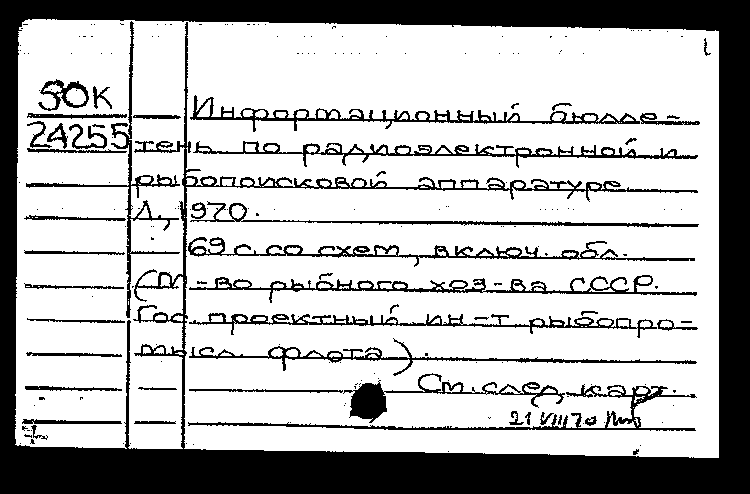 1
50К
24255
Информационный бюлле-
тень по радиоэлектронной и
рыбопоисковой аппаратуре
Л., 1970.
69 с. со схем., включ. обл.
(М-во рыбного хоз-ва СССР.
Гос проектный ин-т рыбопро-
мысл. флота).
См. след. карт.
21 VIII 70